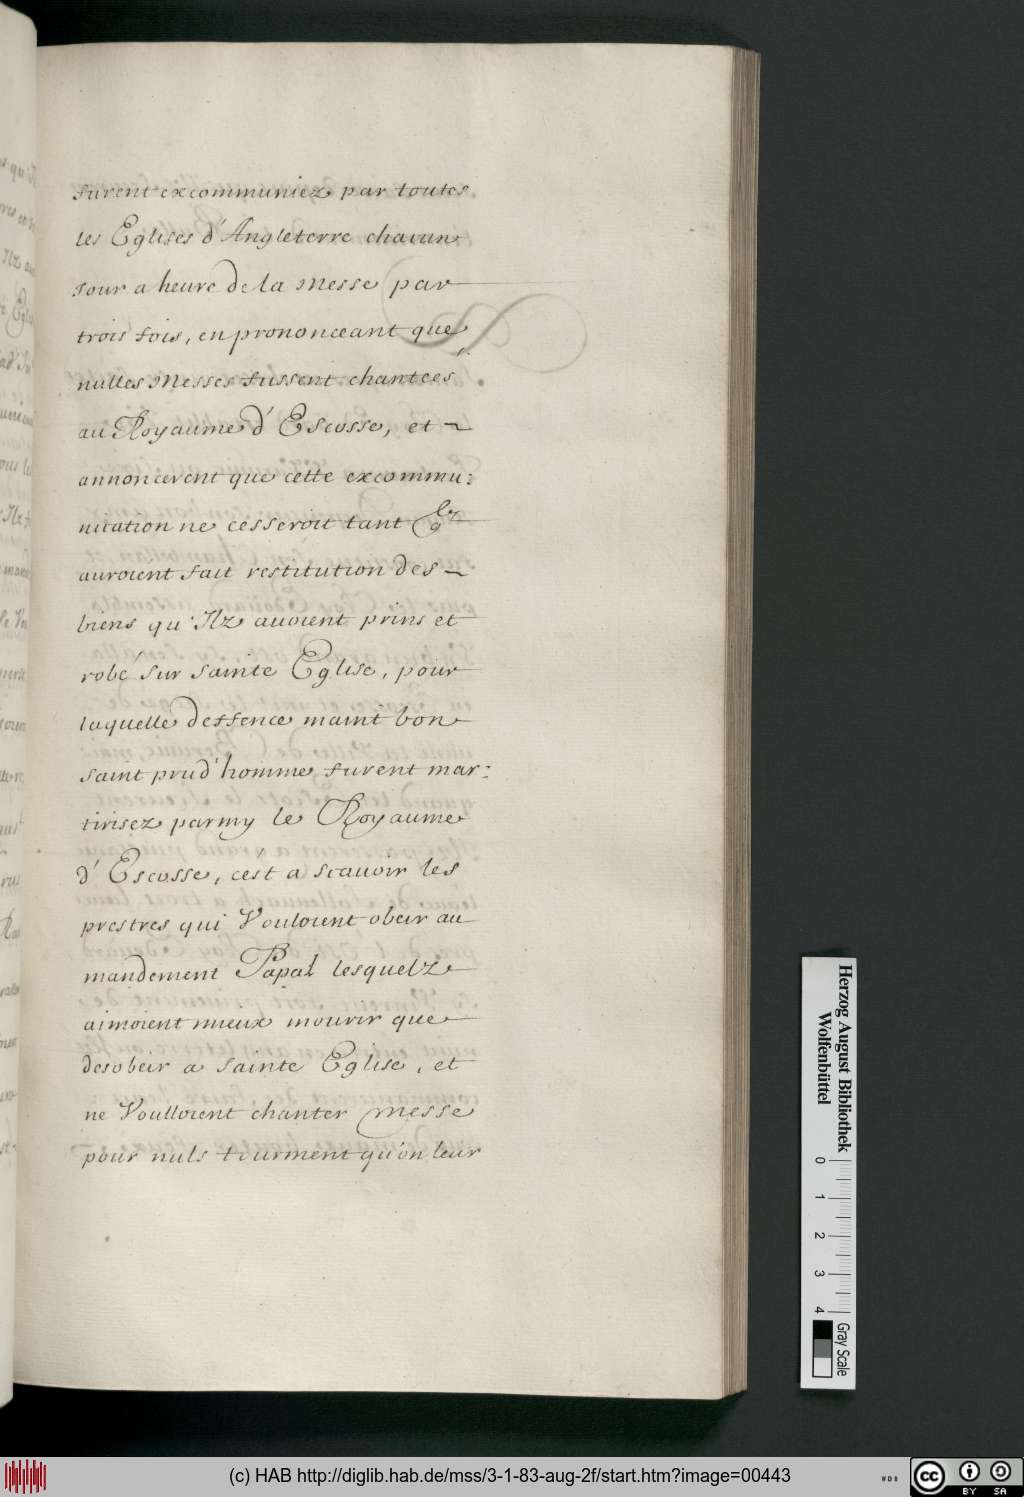 furent excommuniez par toutes
les Eglises d'Angleterre chacun
Jour a heure de la Messe par
trois fois, en prononceant que
nulles Messes fussent chantées
au Royaume d'Escosse, et
annoncerent que cette excommu:
nication ne cesseroit tant
auroient fait restitution des
biens qu'Ilz avoient prins et
robé sur sainte Eglise, pour
laquelle deffence maint bon
saint prud'homme furent mar:
tirisez parmy le Royaume
d'Escosse, c'est a scavoir les
prestres qui Vouloient obeir au
mandement Papal lesquelz
aimoient mieux mourir que
desobeir a sainte Eglise, et
ne Voulloient chanter messe
pour nuls tourment qu'on leur
Herzog August Bibliothek
Wolfenbüttel
0 1 2 3 4
Gray Scale
(c) HAB http://diglib.hab.de/mss/3-1-83-aug-2f/start.htm?image=00443
cc BY SA